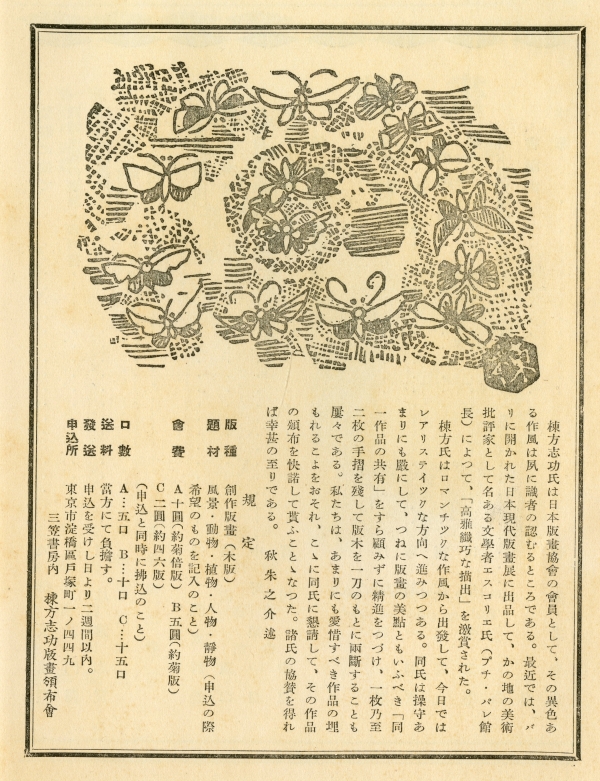 棟方志功氏は日本版畫協會の會員として、その異色あ
る作風は夙に識者の認むるところである。最近では、パ
リに開かれた日本現代版畫展に出品して、かの地の美術
批評家として名ある文學者エスコリエ氏(プチ・パレ館
長)によつて、「高雅纖巧な描出」を激賞された。
棟方氏はロマンチツクな作風から出發して、今日では
レアリステイツクな方向へ進みつつある。同氏は操守あ
まりにも嚴にして、つねに版畫の美點ともいふべき「同
一作品の共有」をすら顧みずに精進をつづけ、一枚乃至
二枚の手摺を殘して版木を一刀のもとに兩斷することも
屢々である。私たちは、あまりにも愛惜すべき作品の埋
もれることをおそれ、こゝに同氏に懇請して、その作品
の頒布を快諾して貰ふことゝなつた。諸氏の協賛を得れ
ば幸甚の至りである。 秋朱之介述
規定
版種 創作版畫(木版)
題材 風景・動物・植物・人物・靜物(申込の際
希望のものを記入のこと)
會費 A十圓(約菊倍版) B五圓(約菊版)
C二圓(約四六版)
(申込と同時に拂込のこと)
口數 A…五口 B…十口 C…十五口
送料 當方にて負擔す。
發送 申込を受けし日より二週間以内。
申込所 東京市淀橋區戸塚町一ノ四四九
三笠書房内 棟方志功版畫頒布會